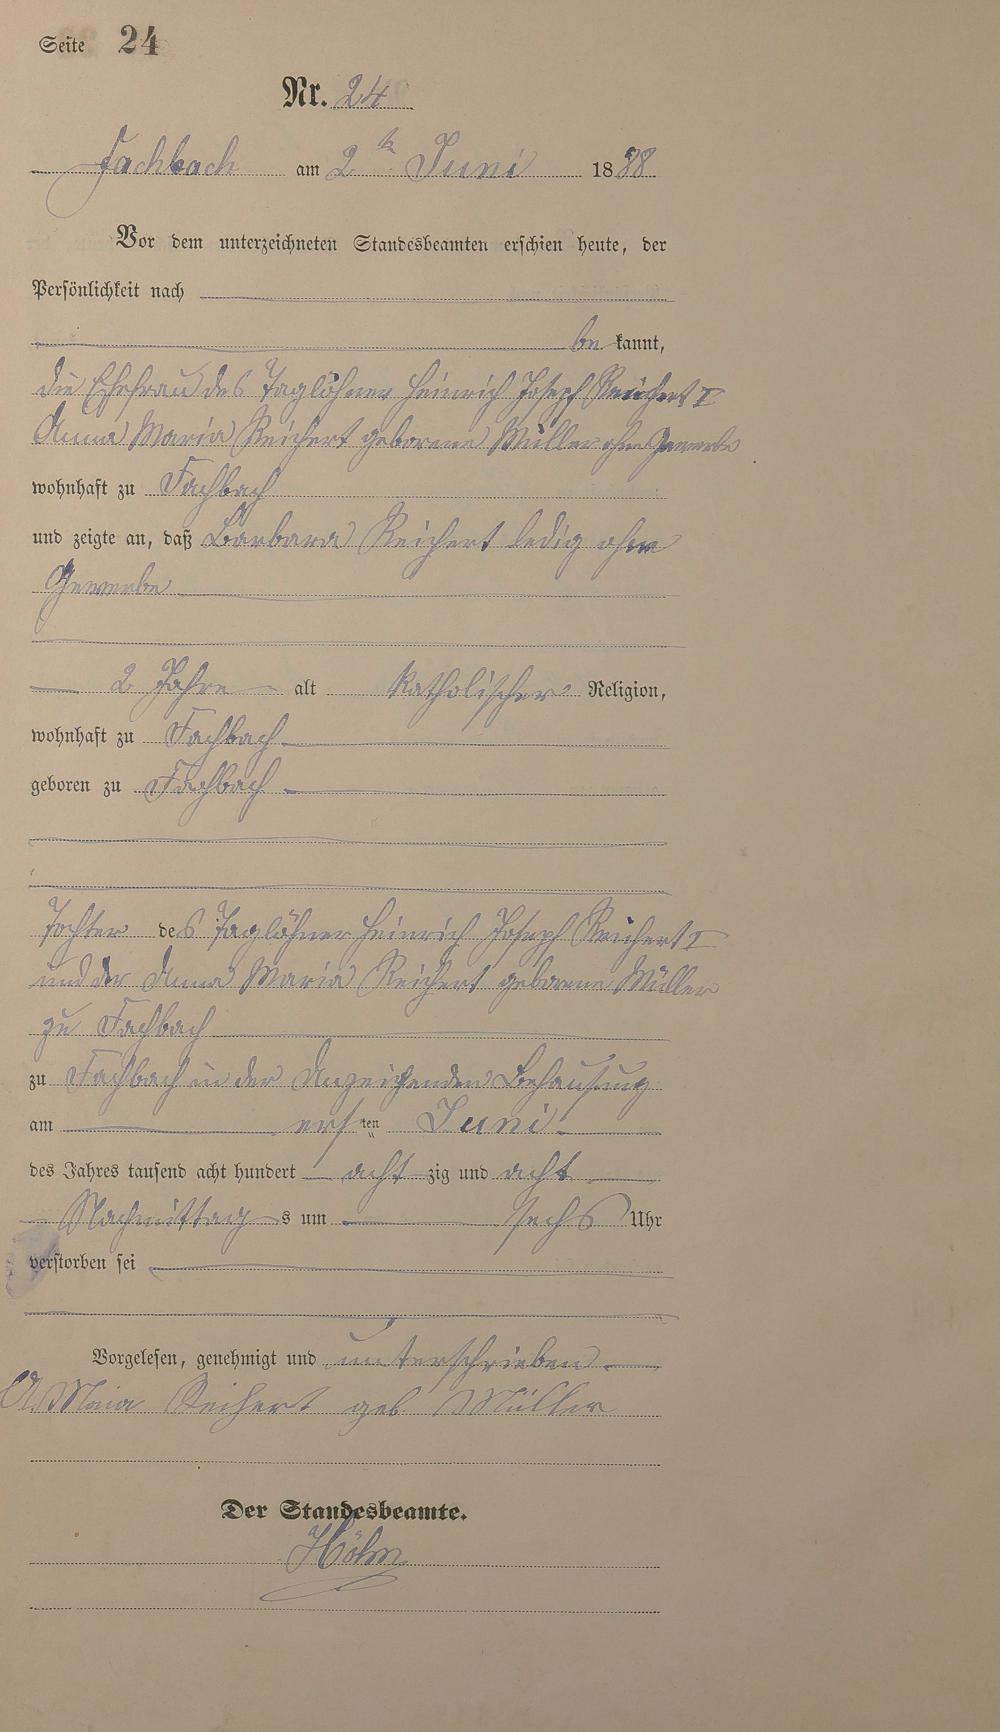 Seite 24
Nr. 24
Fachbach am 2ten Juni 1888
Vor dem unterzeichneten Standesbeamten erschien heute, der
Persönlichkeit nach
be kannt,
die Ehefrau des Taglöhner Heinrich Joseph Reichert I
Anna Maria Reichert geborene Müller ohne Gewerbe
wohnhaft zu Fachbach
und zeigte an, daß Barbara Reichert ledig ohne
Gewerbe
2 Jahre alt katholischer Religion,
wohnhaft zu Fachbach
geboren zu Fachbach
Tochter des Taglöhner Heinrich Joseph Reichert I
und der Anna Maria Reichert geborene Müller
zu Fachbach
zu Fachbach in der Anzeigenden Behausung
am ersten Juni
des Jahres tausend acht hundert acht zig und acht
Nachmittags um sechs Uhr
verstorben sei
Vorgelesen, genehmigt und unterschrieben.
A. Maia Reihert geb Müller
Der Standesbeamte.